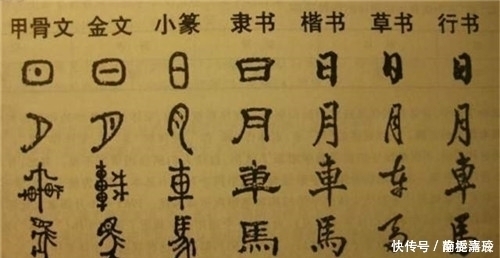 甲骨文 金文 小篆 隶书 楷书 草书 行书
日 日 日 日 日 日 日
月 月 月 月 月 月 月
車 車 車 車 車 车 車
馬 馬 馬 馬 馬 马 馬
快传号/